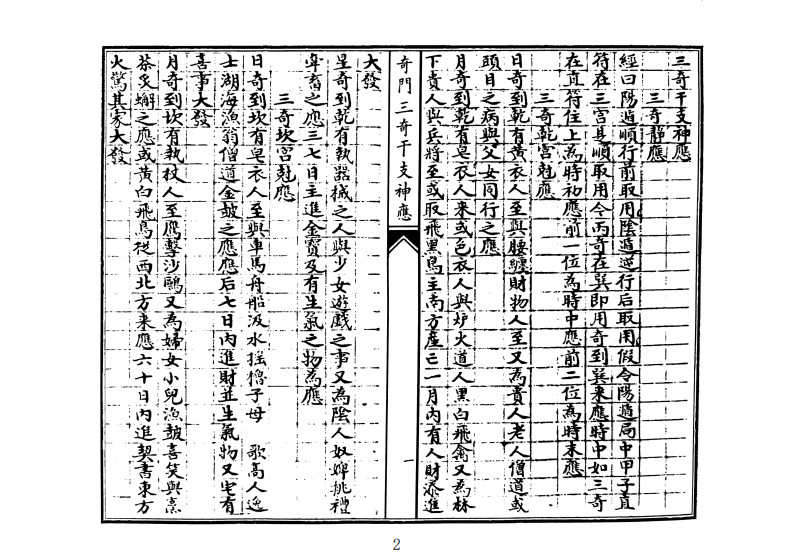 三奇干支神應
三奇靜應
經曰陽遁順行前取用陰遁逆行后取用假令陽遁局中甲子直
符在三宮具順取用令丙奇在巽即用奇到巽来應時中如三奇
在直符住上為時初應前一位為時中應前二位為時末應
三奇乾宮尅應
日奇到乾有黃衣人至與腰纏財物人至又為貴人老人僧道或
頭目之病與父女同行之應
月奇到乾有皂衣人来或色衣人與炉火道人黑白飛禽又為林
下貴人與兵將至或取飛黑鳥主南方產三一月內有人財添進
大發
奇門三奇干支神應
一
星奇到乾有執器械之人與少女遊戲之事又為陰人奴婢挑禮
牽畜之應三七日主進金寶及有生氣之物為應
三奇坎宮尅應
日奇到坎有皂衣人至與車馬舟船汲水搖櫓子母 歌高人逸
士湖海漁翁僧道金皷之應應后七日內進財並生氣物又宅有
喜事大發
月奇到坎有執杖人至鷹擊沙鷗又為婦女小兒漁皷喜笑與烹
茶炙蠏之應或黃白飛鳥從西北方来應六十日內進契書東方
火驚其家大發
2